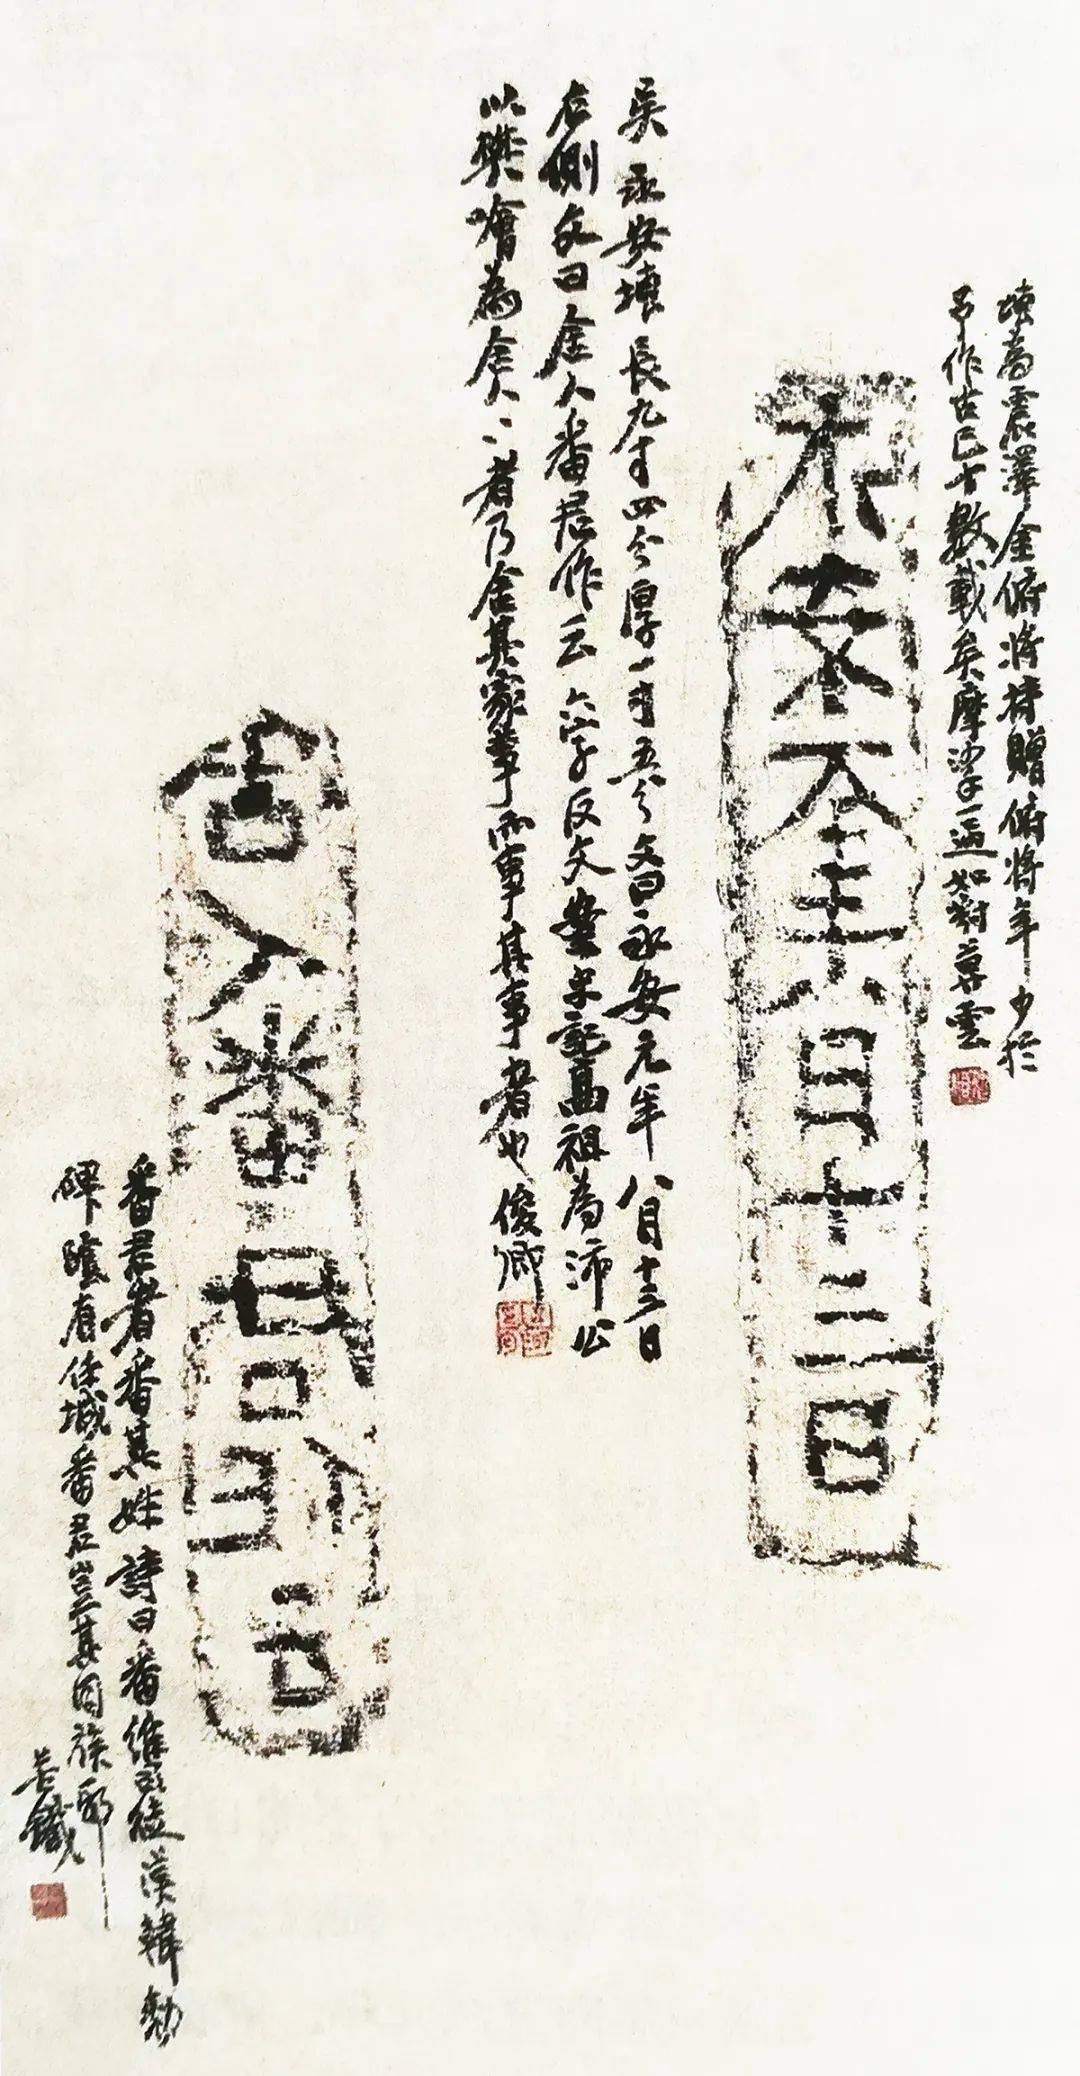 塼為震澤金俯將持贈俯將年少於
予作古已十數載矣摩挲一過如對暮雲
永安元年八月十三日
吳永安塼長九寸四分厚一寸五分文曰永安元年八月十三日
右側文曰舍人番君作云六字反文案史記高祖為沛公
以樊噲為舍人人者乃舍其家事而事其事者也俊卿
舍人番君作
番君者番其姓詩曰番維司徒漢韓勑
碑陰有徐城番君豈其同族耶
苦鐵